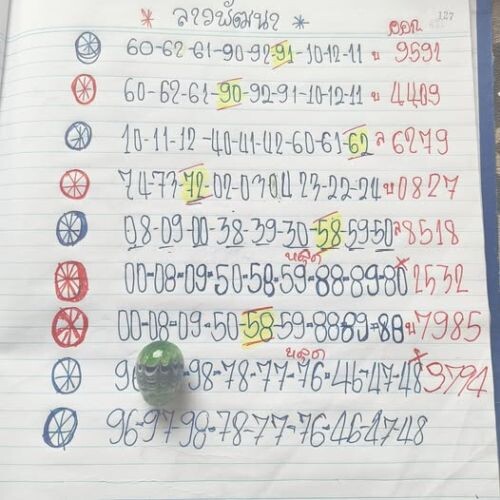 127
* ลาวพัฒนา * ออก
60-62-61-90-92-91-10-12-11 บ 9591
60-62-61-90-92-91-10-12-11 บ 4409
10-11-12-40-41-42-60-61-62 ล 6279
74-73-72-02-03 04 23-22-24 บ 0827
08-09-00-38-39-30-58-59-50 ล 8518
หลุด
00-08-09-50-58-59-88-89-80 x 2532
00-08-09-50-58-59-88-89-88 บ 7985
หลุด
98-78-77-76-46-47-48 x 9794
96-97-98-78-77-76-46-47-48